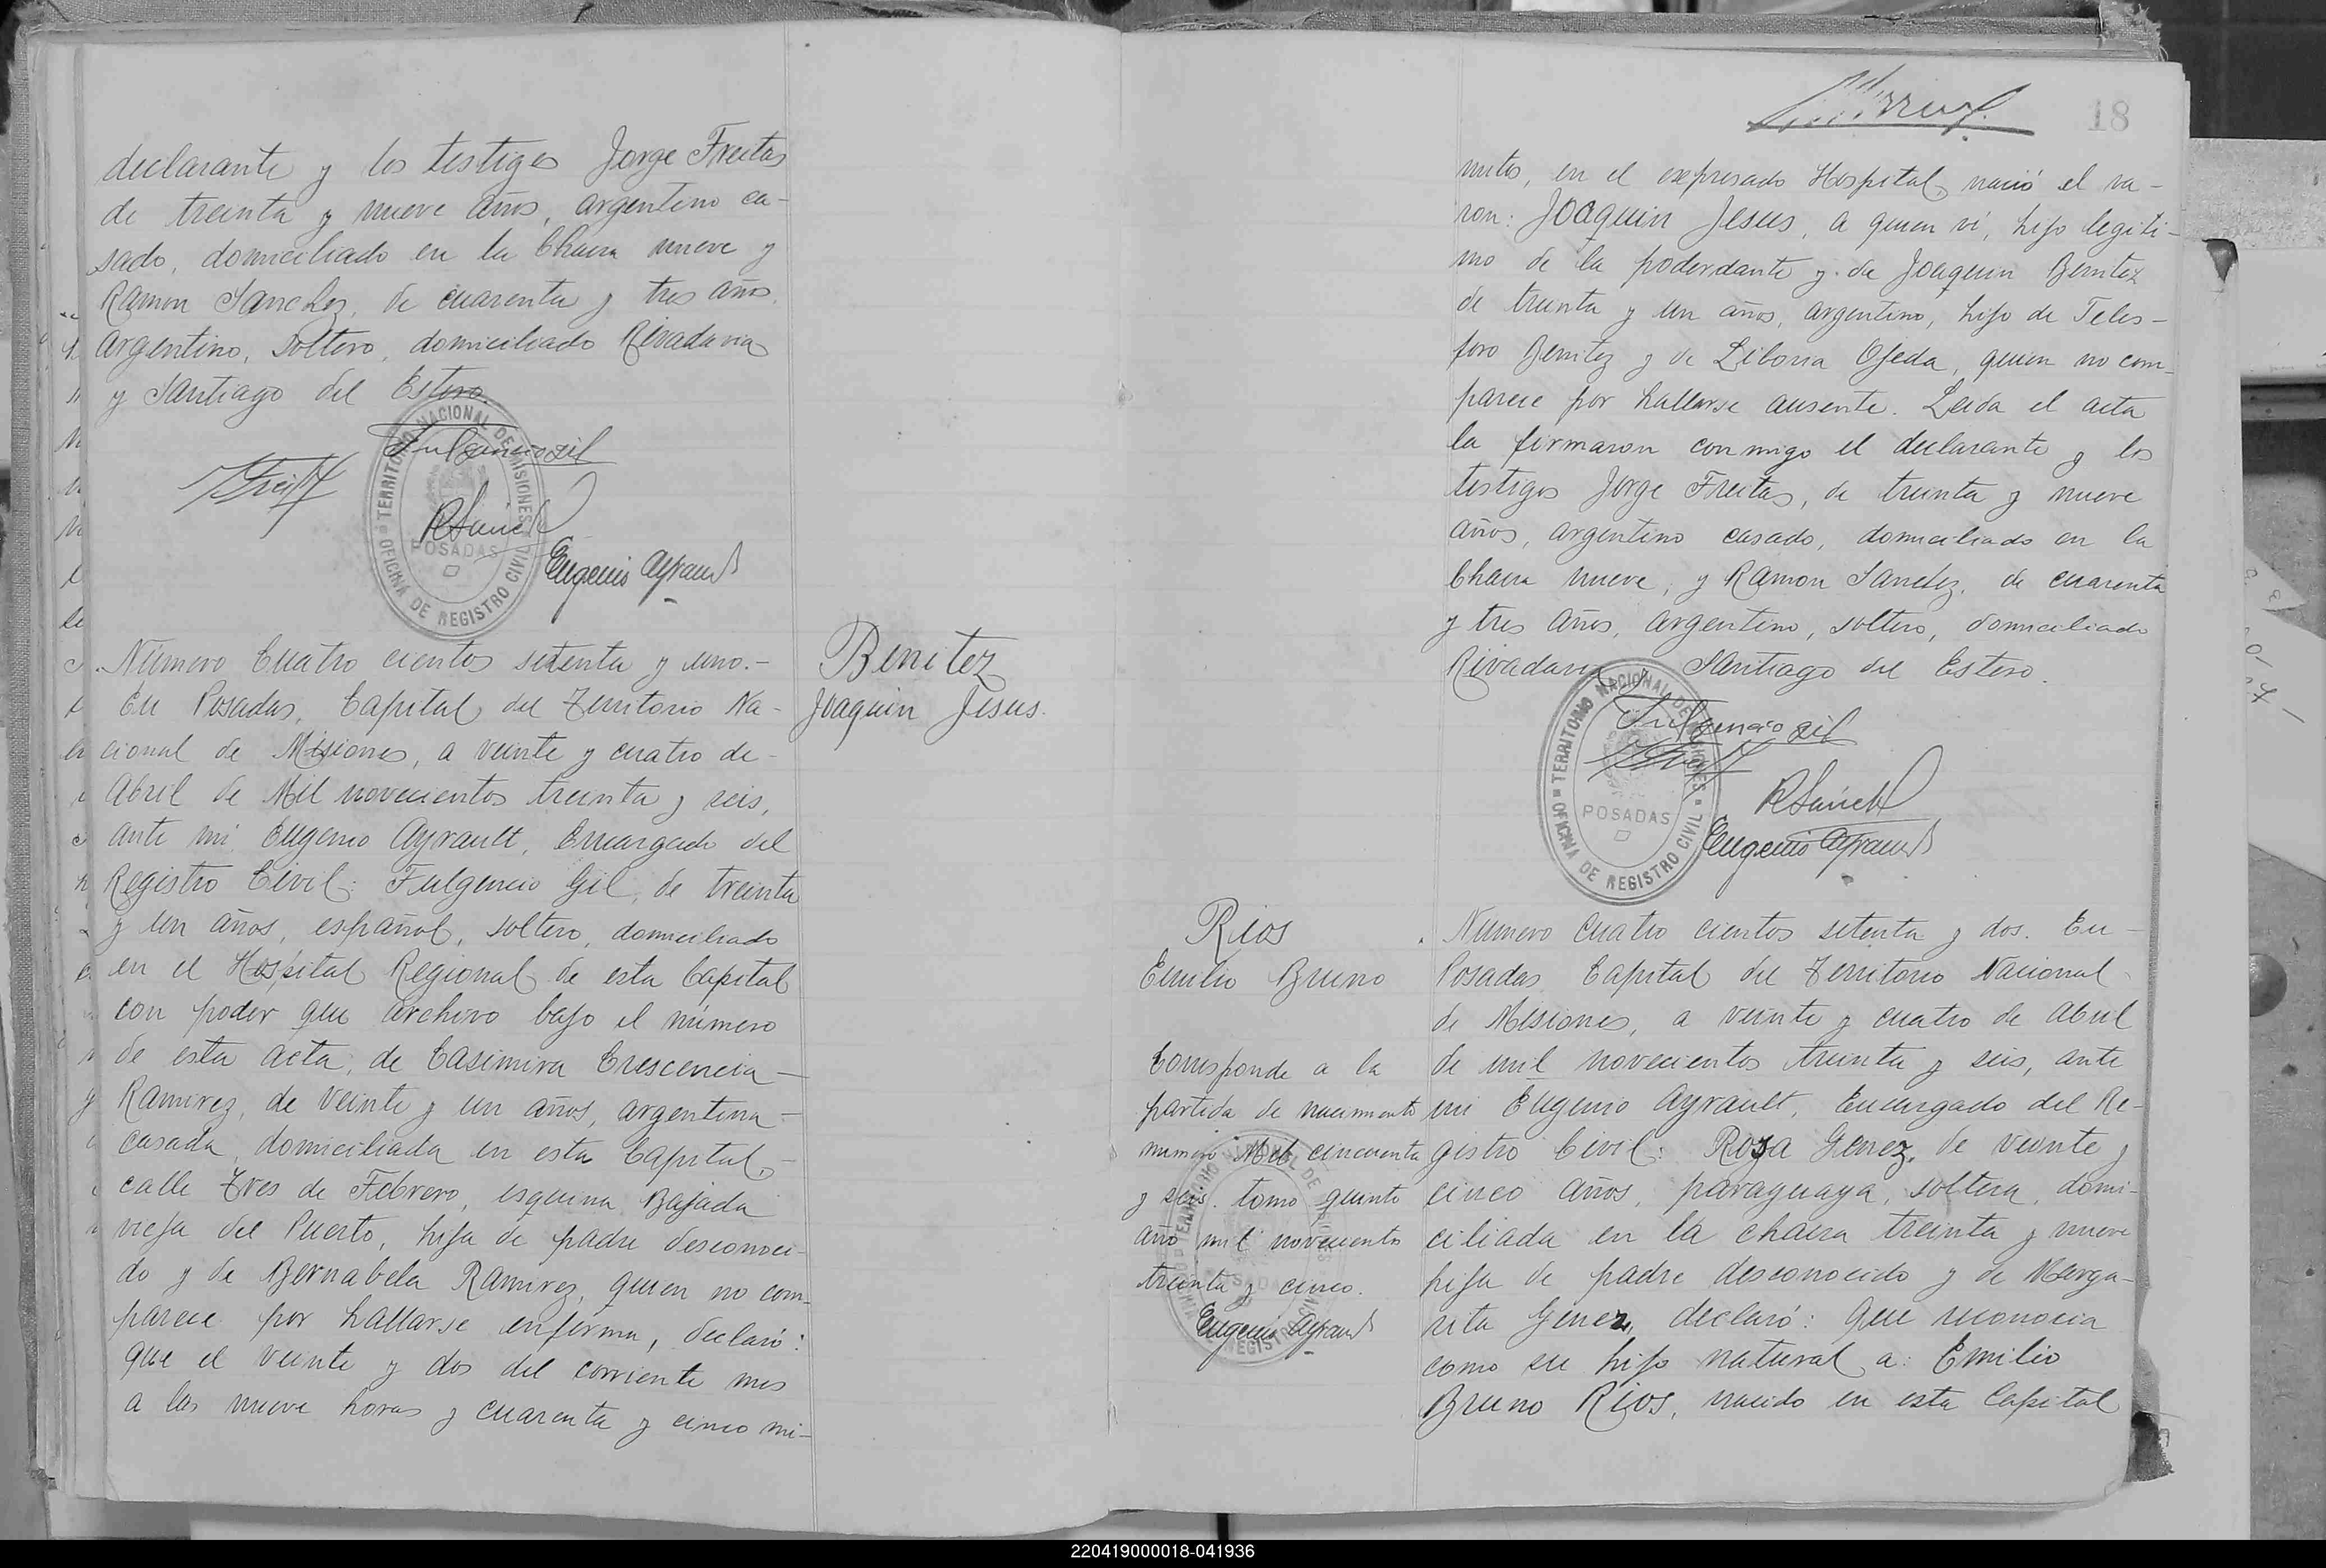 declarante y los testigos Jorge Freitas
de treinta y nueve años, argentino ca-
sado, domiciliado en la Chacra nueve y
Ramon Sanchez, de cuarenta y tres años,
argentino, soltero, domiciliado Rivadavia
y Santiago del Estero.
Fulgencio Gil
R Sanch
Eugenio Ayrault
TERRITORIO NACIONAL DE MISIONES
OFICINA DE REGISTRO CIVIL
POSADAS
Benitez
Joaquin Jesus.
Número Cuatro cientos setenta y uno.-
En Posadas, Capital del Territorio Na-
cional de Misiones, a veinte y cuatro de-
Abril de Mil novecientos treinta y seis,
ante mi Eugenio Ayrault, Encargado del
Registro Civil: Fulgencio Gil, de treinta
y un años, español, soltero, domiciliado
en el Hospital Regional de esta Capital
con poder que archivo bajo el número
de esta acta, de Casimira Crescencia-
Ramirez, de veinte y un años, argentina-
casada, domiciliada en esta Capital,-
calle Tres de Febrero, esquina Bajada
vieja del Puerto, hija de padre desconoci-
do y de Bernabela Ramirez, quien no com-
parece por hallarse enferma, declaró:
que el veinte y dos del corriente mes
a las nueve horas y cuarenta y cinco mi-
18
nutos, en el expresado Hospital nació el va-
ron: Joaquin Jesus, a quien ví, hijo legiti-
mo de la poderdante y de Joaquin Benitez
de treinta y un años, argentino, hijo de Teles-
foro Benitez y de Liboria Ojeda, quien no com-
parece por hallarse ausente. Leida el acta
la firmaron conmigo el declarante y los
testigos Jorge Freitas, de treinta y nueve
años, argentino casado, domiciliado en la
Chacra nueve, y Ramon Sanchez, de cuarenta
y tres años, argentino, soltero, domiciliado
Rivadavia y Santiago del Estero.
Fulgencio Gil
R Sanch
Eugenio Ayrault
TERRITORIO NACIONAL DE MISIONES
OFICINA DE REGISTRO CIVIL
POSADAS
Rios
Emilio Bruno
Corresponde a la
partida de nacimiento
número Mil cincuenta
y seis. tomo quinto
año mil novecientos
treinta y cinco.
Eugenio Ayrault
Número Cuatro cientos setenta y dos. En-
Posadas Capital del Territorio Nacional
de Misiones, a veinte y cuatro de Abril
de mil novecientos treinta y seis, ante
mi Eugenio Ayrault, Encargado del Re-
gistro Civil: Rosa Genez, de veinte y
cinco años, paraguaya, soltera, domi-
ciliada en la chacra treinta y nueve
hija de padre desconocido y de Marga-
rita Genez, declaró: que reconocia
como su hijo natural a: Emilio
Bruno Rios, nacido en esta Capital
220419000018-041936